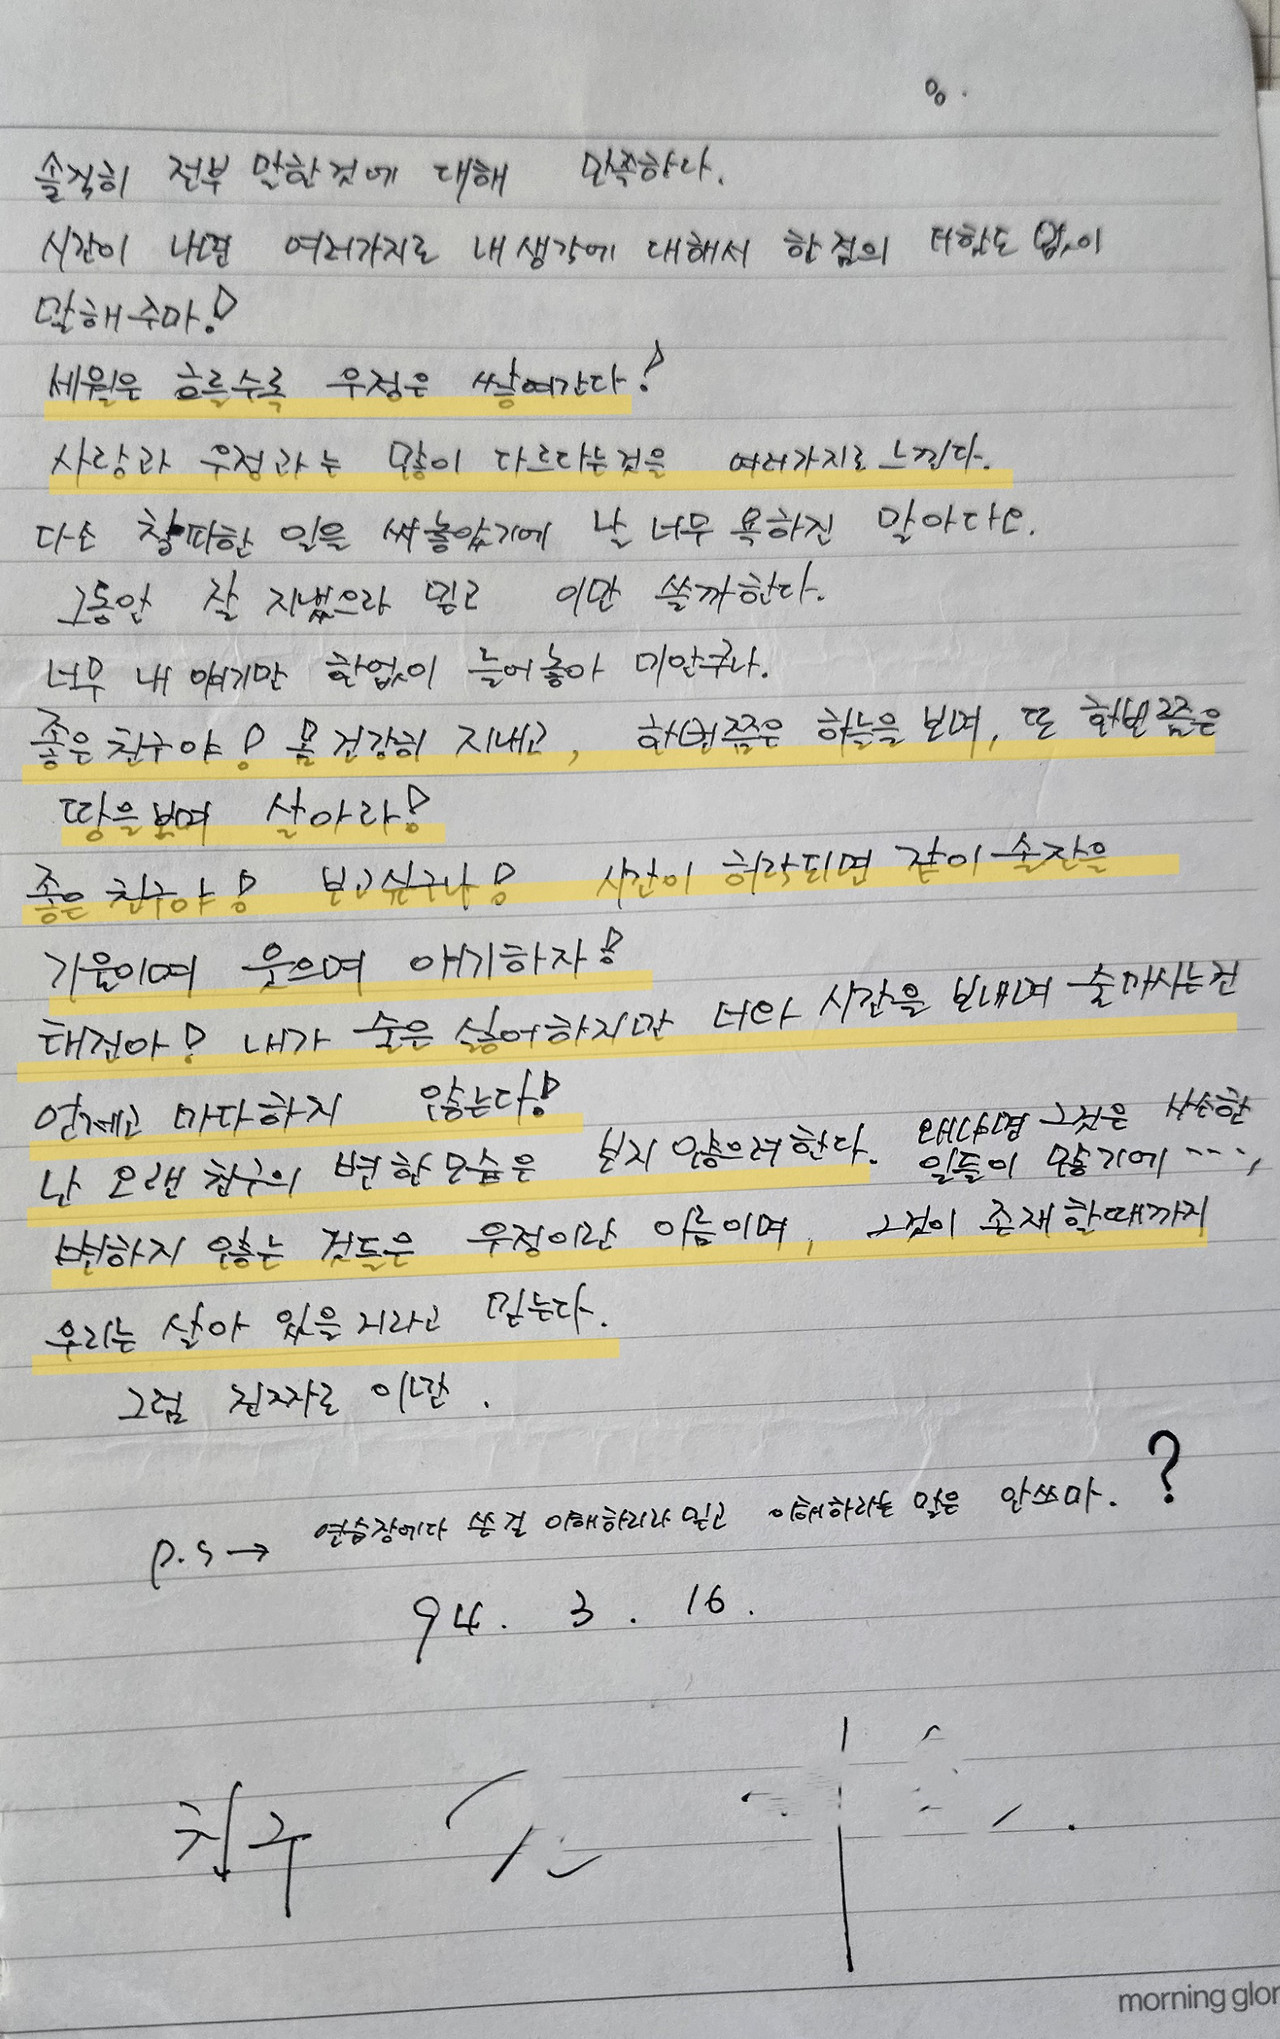 솔직히 전부 말한것에 대해 만족하다.
시간이 나면 여러가지로 내 생각에 대해서 한 점의 더함도 없이
말해주마!
세월은 흐를수록 우정은 쌓여간다!
사랑과 우정과는 많이 다르다는것을 여러가지로 느낀다.
다소 착잡한 일을 써놓았기에 날 너무 욕하진 말아다오.
그동안 잘 지냈으라 믿고 이만 쓸까한다.
너무 내 얘기만 한없이 늘어놓아 미안쿠나.
좋은 친구야! 몸 건강히 지내고, 한번쯤은 하늘을 보며, 또 한번쯤은
땅을보며 살아라!
좋은 친구야! 보고싶구나! 시간이 허락되면 같이 술잔을
기울이며 웃으며 얘기하자!
태진아! 내가 술은 싫어하지만 너와 시간을 보내며 술마시는건
언제고 마다하지 않는다!
난 오랜 친구의 변한모습은 보지 않으려한다. 왜냐면 그것은 사소한
일들이 많기에 ----,
변하지 않는 것들은 우정이란 이름이며, 그것이 존재할때까지
우리는 살아 있을지라고 믿는다.
그럼 진짜로 이만.
P.S → 연습장에다 쓴걸 이해하리라 믿고 이해하라는 말은 안쓰마. ?
94. 3. 16.
친구
morning glor